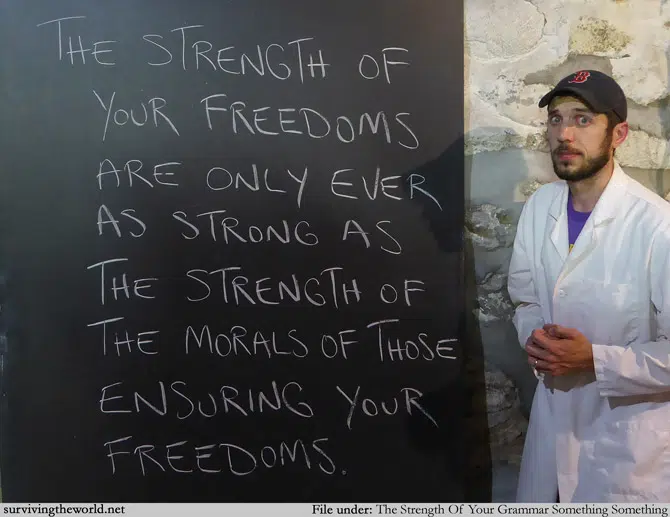 THE STRENGTH OF
YOUR FREEDOMS
ARE ONLY EVER
AS STRONG AS
THE STRENGTH OF
THE MORALS OF THOSE
ENSURING YOUR
FREEDOMS.
B
survivingtheworld.net
File under: The Strength Of Your Grammar Something Something